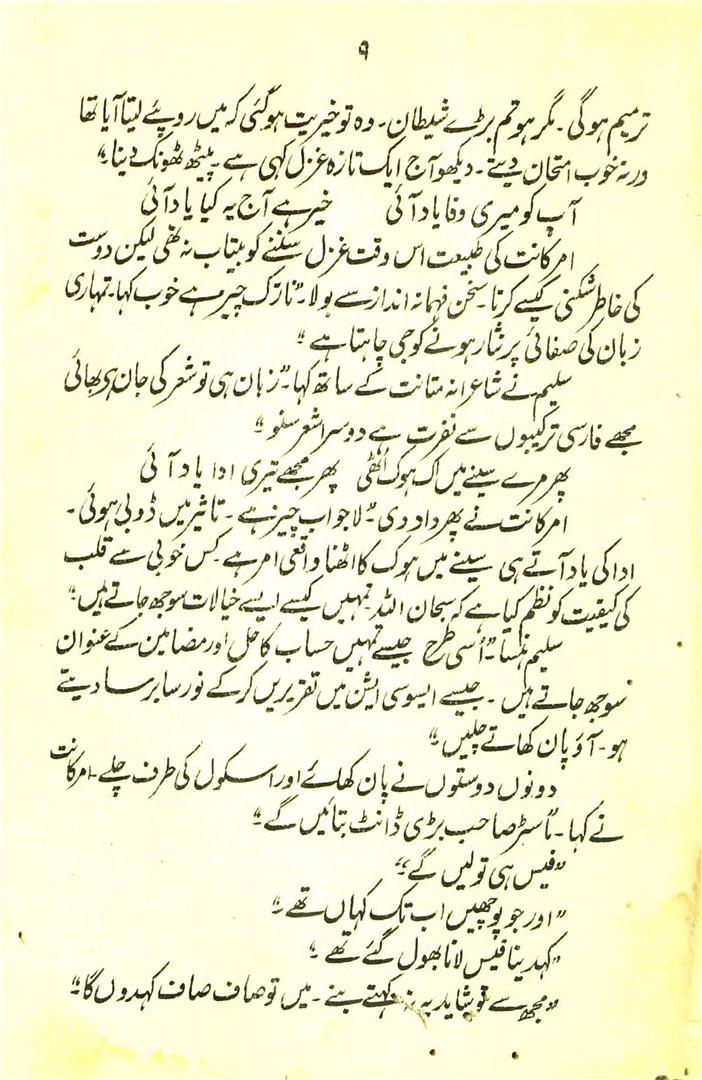 ۹
ترمیم ہوگی۔ مگر ہو تم بڑے شیطان۔ وہ تو خیریت ہوگئی کہ میں روپئے لیتا آیا تھا
ورنہ خوب امتحان دیتے۔ دیکھو آج ایک تازہ غزل کہی ہے۔ پیٹھ ٹھونک دینا۔"
آپ کو میری وفا یاد آئی خیر ہے آج یہ کیا یاد آئی
امرکانت کی طبیعت اس وقت غزل سننے کو بیتاب نہ تھی لیکن دوست
کی خاطر شکنی کیسے کرتا۔ سخن فہمانہ انداز سے بولا۔ "نازک چیز ہے خوب کہا۔ تمہاری
زبان کی صفائی پر نثار ہونے کو جی چاہتا ہے"
سلیم نے شاعرانہ متانت کے ساتھ کہا۔ "زبان ہی تو شعر کی جان ہے بھائی
مجھے فارسی ترکیبوں سے نفرت ہے دوسرا شعر سنو"
پھر مرے سینے میں اک ہوک اُٹھی پھر مجھے تیری ادا یاد آئی
امرکانت نے پھر داد دی۔ "لاجواب چیز ہے۔ تاثیر میں ڈوبی ہوئی۔
ادا کی یاد آتے ہی سینے میں ہوک کا اٹھنا واقعی امر ہے۔ کس خوبی سے قلب
کی کیفیت کو نظم کیا ہے کہ سبحان اللہ۔ تمہیں کیسے ایسے خیالات سوجھ جاتے ہیں"
سلیم ہنسا۔ "اُسی طرح جیسے تمہیں حساب کا حل اور مضامین کے عنوان
سوجھ جاتے ہیں۔ جیسے ایسوسی ایشن میں تقریریں کرکے نور سا برسا دیتے
ہو۔ آؤ پان کھاتے چلیں"
دونوں دوستوں نے پان کھائے اور اسکول کی طرف چلے۔ امرکانت
نے کہا۔ "ماسٹر صاحب بڑی ڈانٹ بتائیں گے"
"فیس ہی تو لیں گے"
"اور جو پوچھیں اب تک کہاں تھے"
"کہدینا فیس لانا بھول گئے تھے"
"مجھ سے تو شاید یہ نہ کہتے بنے۔ میں تو صاف صاف کہدوں گا"